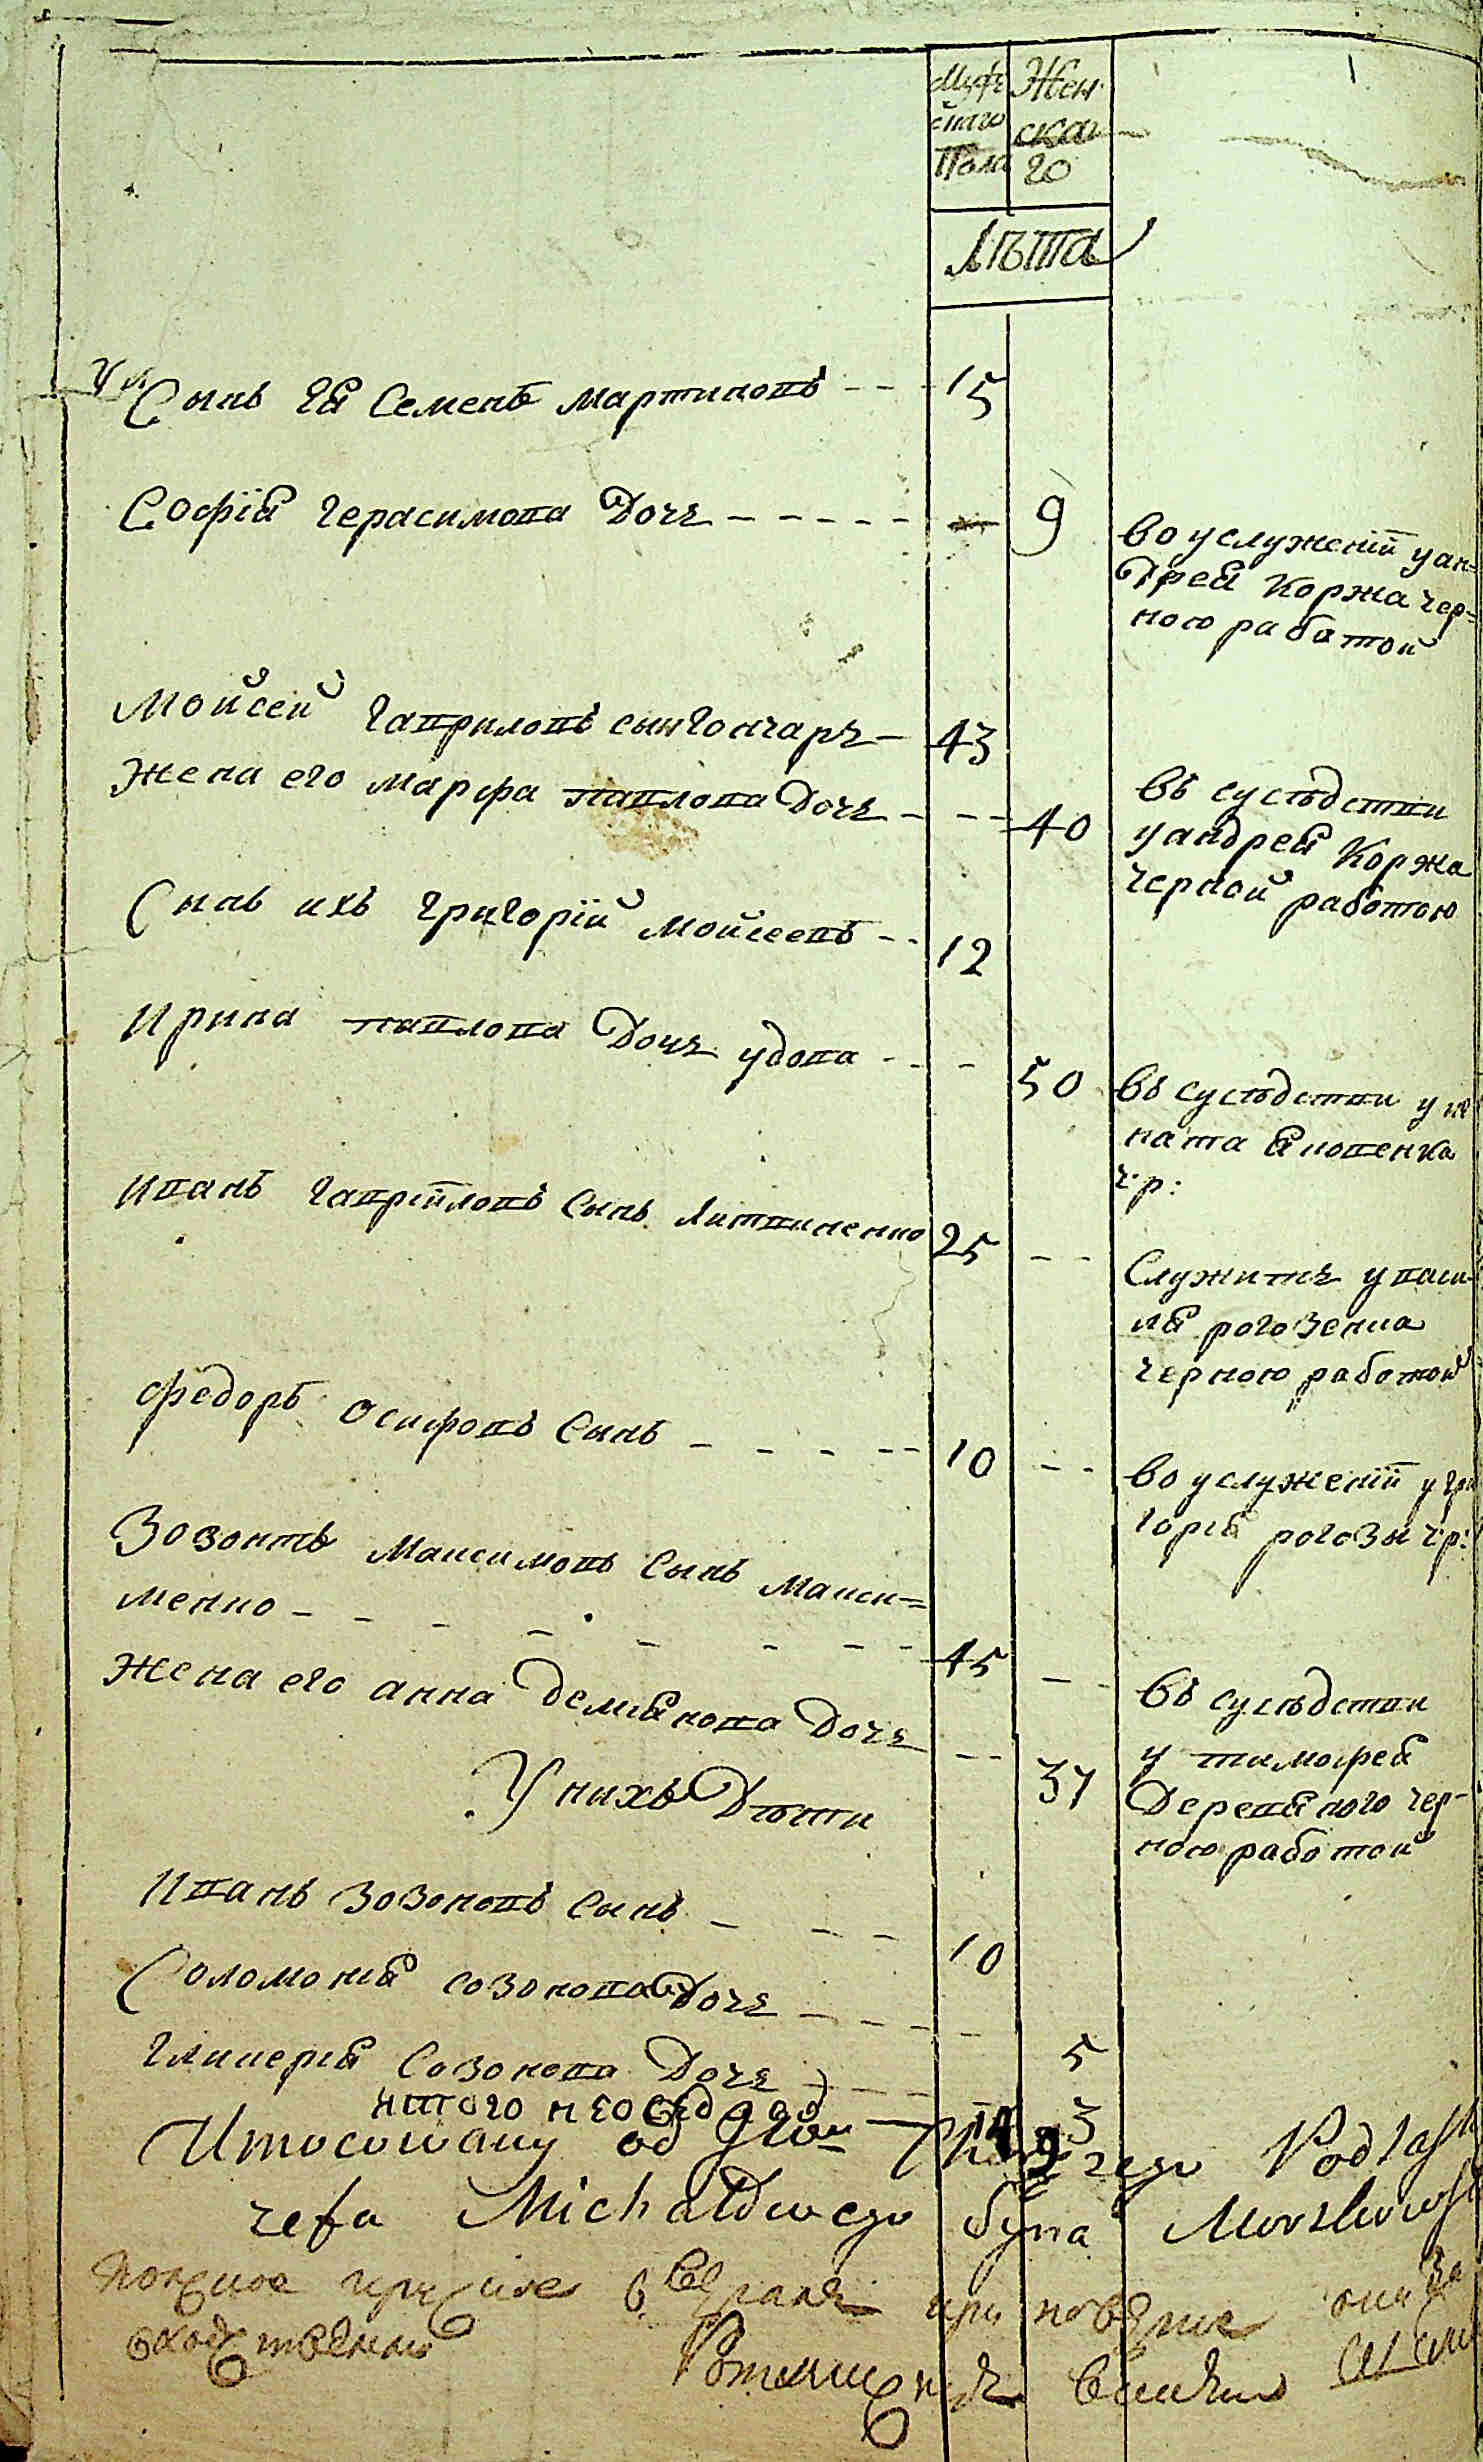 Муже
скаго
Пола
Жен
ска
го
Лѣта
Сынъ Ея Семенъ мартиновъ - - - 15
Софія герасимова Дочъ - - - - - 9
во услуженіи у ан=
дрея Коржа чер=
ною работой
Мойсей гавриловъ сын гончаръ - 43
Жена его марфа павлова Дочъ - - - 40
въ сусѣдстви
у андрея Коржа
черной работою
Снъ ихъ григорій мойсеевъ - - 12
Ирина павлова Дочъ удова - - - 50
въ сусѣдстви у иг
ната
ч: р:
Иванъ гавріиловъ Сынъ литвиненко 25 - -
Служитъ у васи
ля рогозенка
черною работой
федоръ осифовъ Сынъ - - - - - 10 - -
во услуженіи у гри
горія рогозы ч: р:
Зозонтъ Максимовъ Сынъ Макси=
менко - - - - - - - - 45 - -
Жена его анна демянова Дочъ - - 37
въ сусѣдстви
у тимофея
Деревяного чер-
ною работой
У нихъ Дѣти
Иванъ Зозоновъ Сынъ - - - 10
Соломонія созонова Дочъ - - - - 5
гликерія Созонова Дочъ - - - 3
итого 
od
Michałowego Syna
при